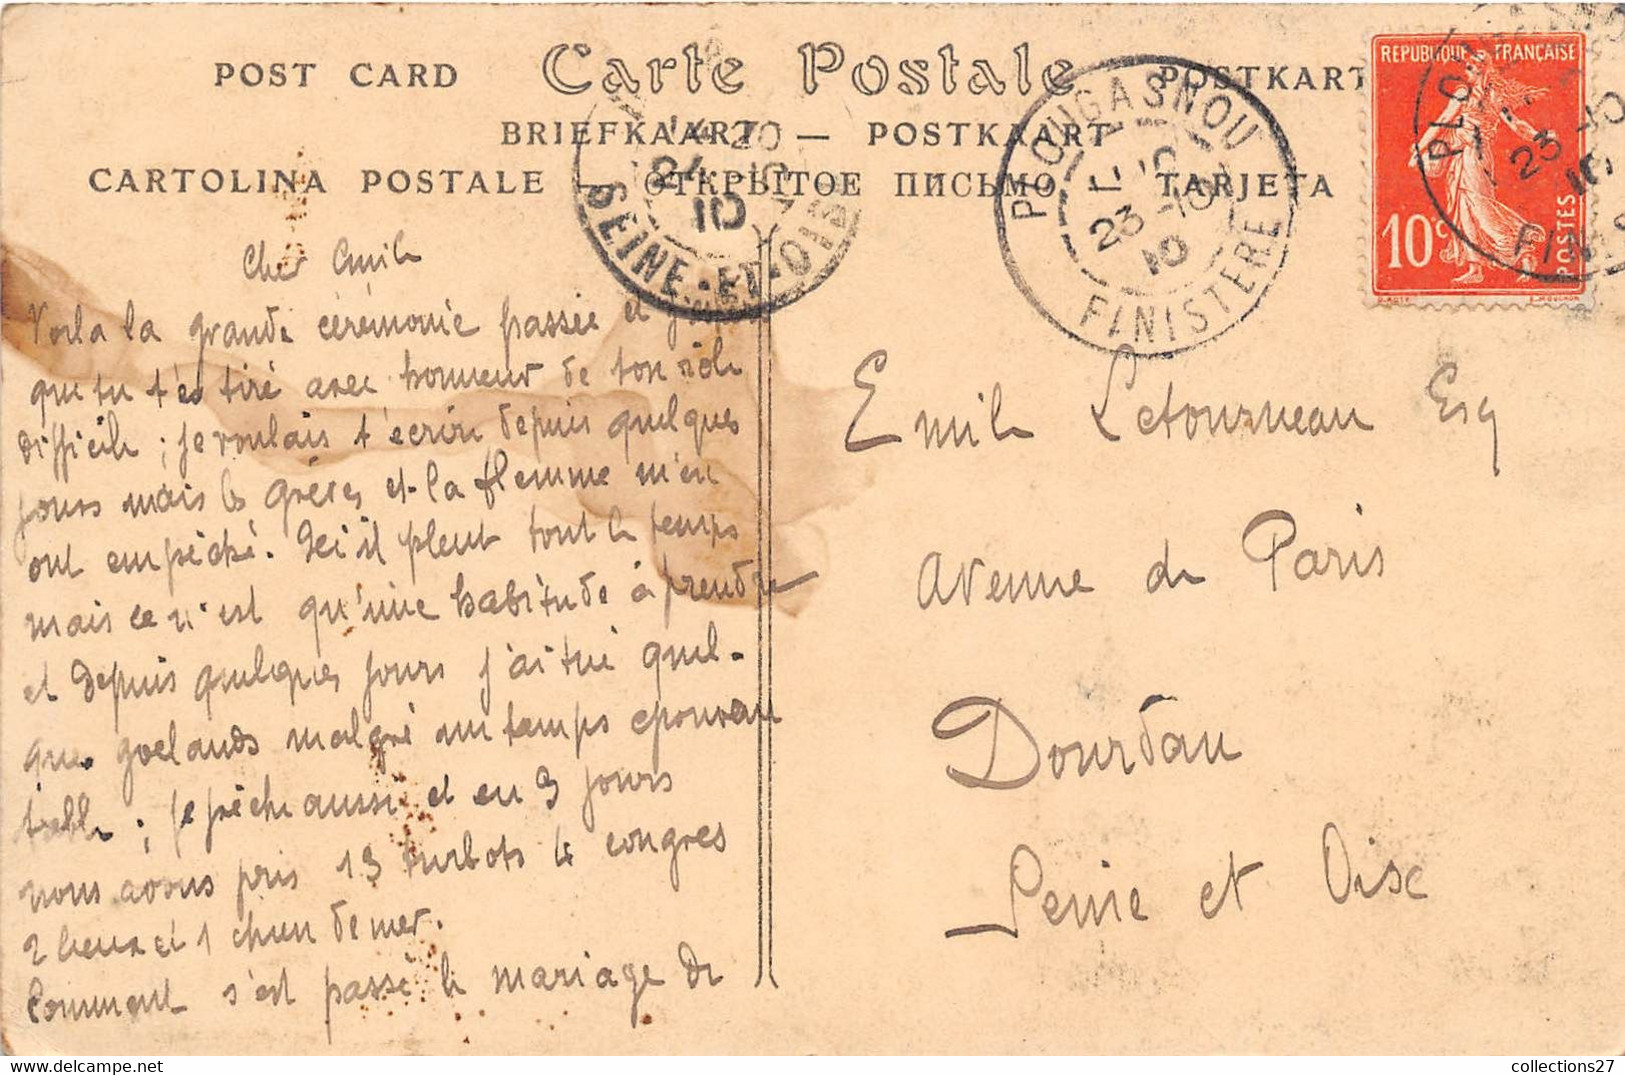 POST CARD Carte Postale POSTKART
BRIEFKAART — POSTKAART
CARTOLINA POSTALE — ОТКРЫТОЕ ПИСЬМО TARJETA
REPUBLIQUE FRANÇAISE
10c POSTES
PLOUGASNOU
23 -10
10
FINISTERE
24 -10
10
SEINE-ET-OISE
PLOUGASNOU
23 -10
10
Cher Emile
Voila la grande cérémonie passée et
que tu t'es tiré avec honneur de ton rôle
difficile ; je voulais t'écrire depuis quelques
jours mais les grèves et la flemme m'en
ont empêché. Ici il pleut tout le temps
mais ce n'est qu'une habitude à prendre
et depuis quelques jours j'ai tué quel-
ques goelands malgré un temps epouvan
table ; je pêche aussi et en 3 jours
nous avons pris 13 turbots 4 congres
2 lieux et 1 chien de mer.
Comment s'est passé le mariage de
Emile Letourneau Esq
Avenue de Paris
Dourdan
Seine et Oise
collections27